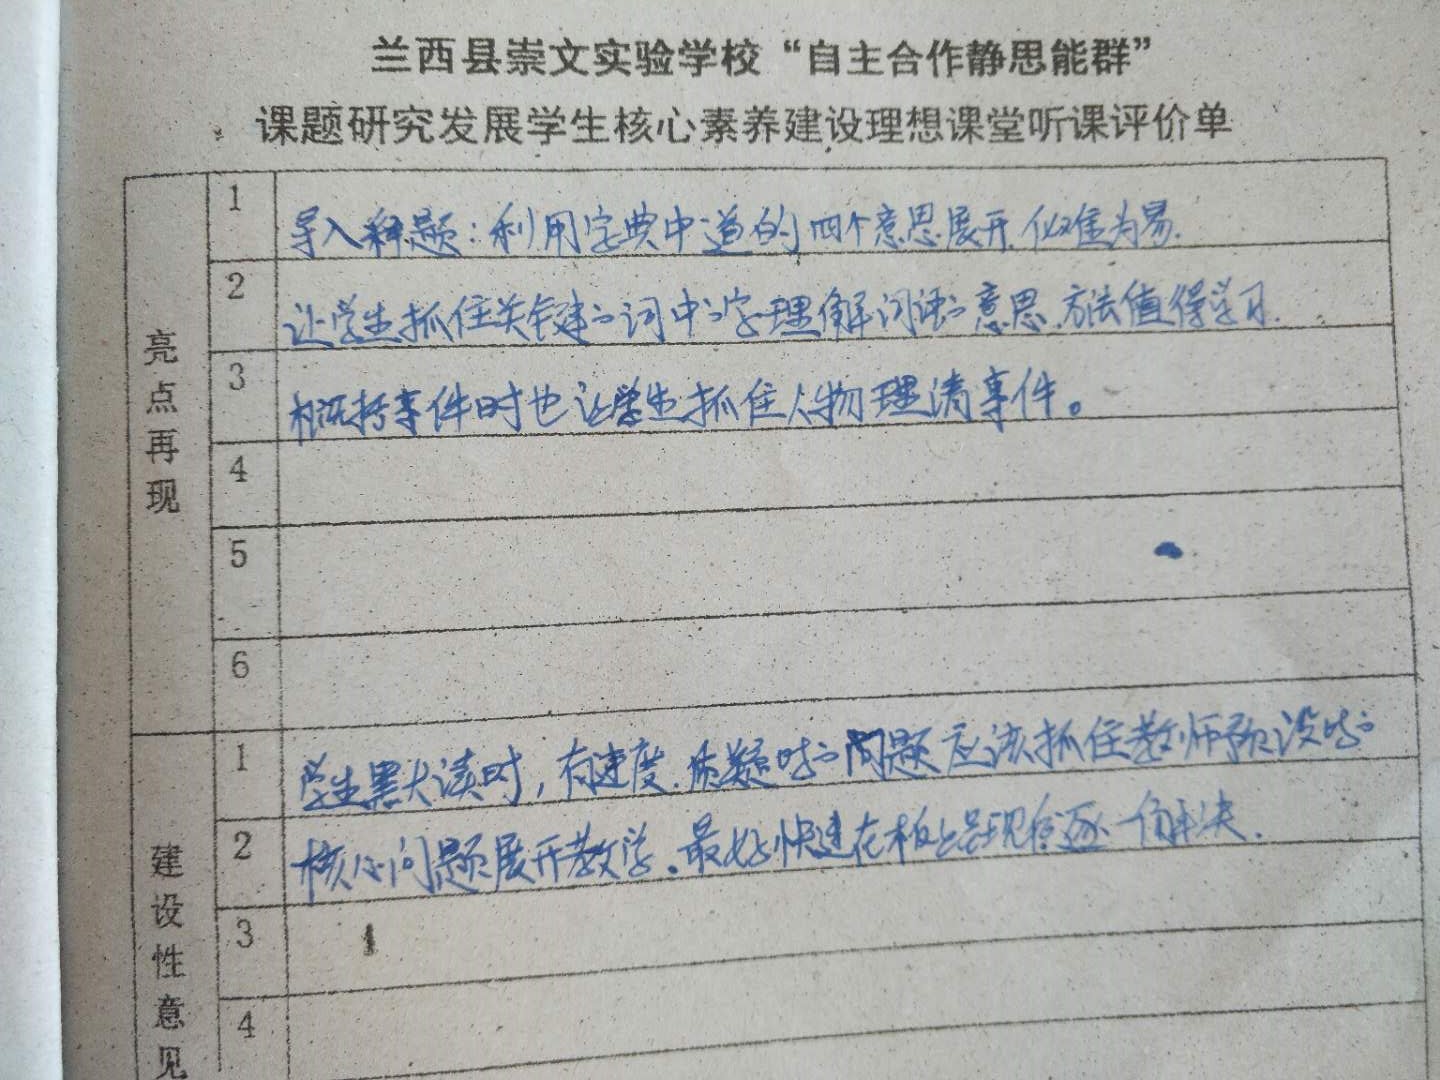 兰西县崇文实验学校“自主合作静思能群”
课题研究发展学生核心素养建设理想课堂听课评价单
亮点再现
1 导入释题：利用字典中道的四个意思展开,化难为易.
2 让学生抓住关键的词中的字理解词语的意思.方法值得学习.
3 概括事件时也让学生抓住人物理清事件。
4
5
6
建设性意见
1 学生默读时,有速度.质疑时的问题应该抓住教师预设时的
2 核心问题展开教学.最好快速在板上呈现后逐一解决.
3
4